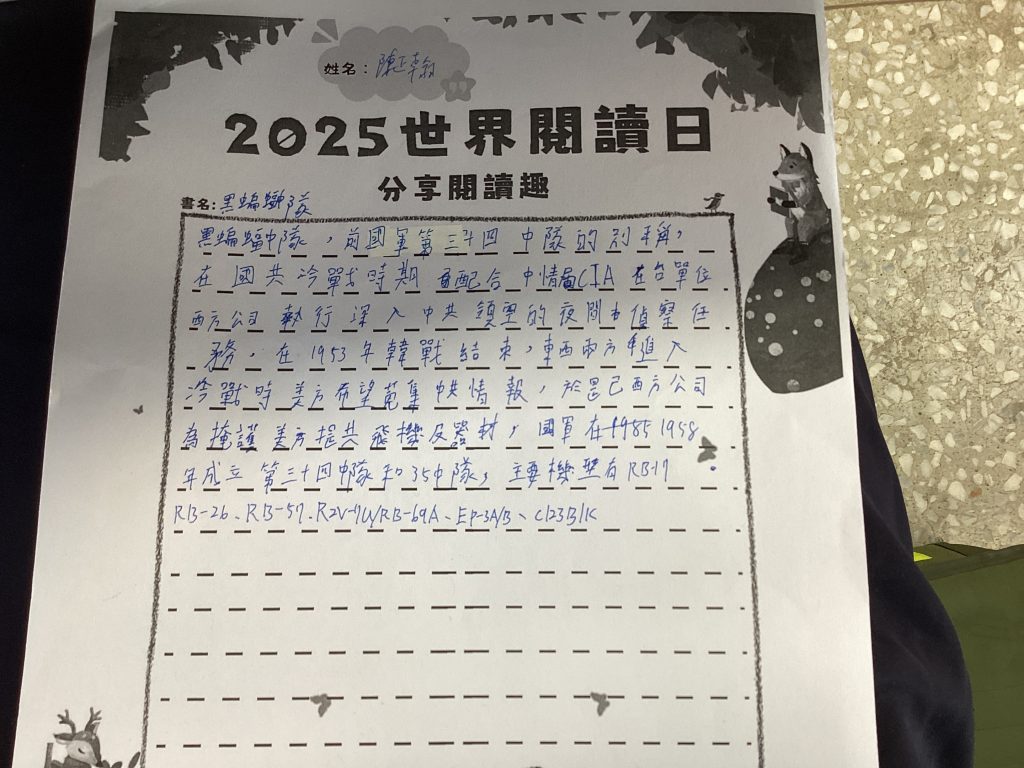 姓名：陳正翰
2025世界閱讀日
分享閱讀趣
書名:黑蝙蝠隊
黑蝙蝠中隊，前國軍第三十四中隊的別稱，
在國共冷戰時期 配合 中情局CIA 在台單位
西方公司 執行深入中共領空的夜間偵察任
務，在1953年韓戰結束，東西兩方進入
冷戰時美方希望蒐集中共情報，於是已西方公司
為掩護美方提共飛機及器材，國軍在1985 1958
年成立 第三十四中隊和35中隊，主要機型有RB-17
RB-26、RB-57、R2V-7U/RB-69A、EP-3A/B、C123B/K